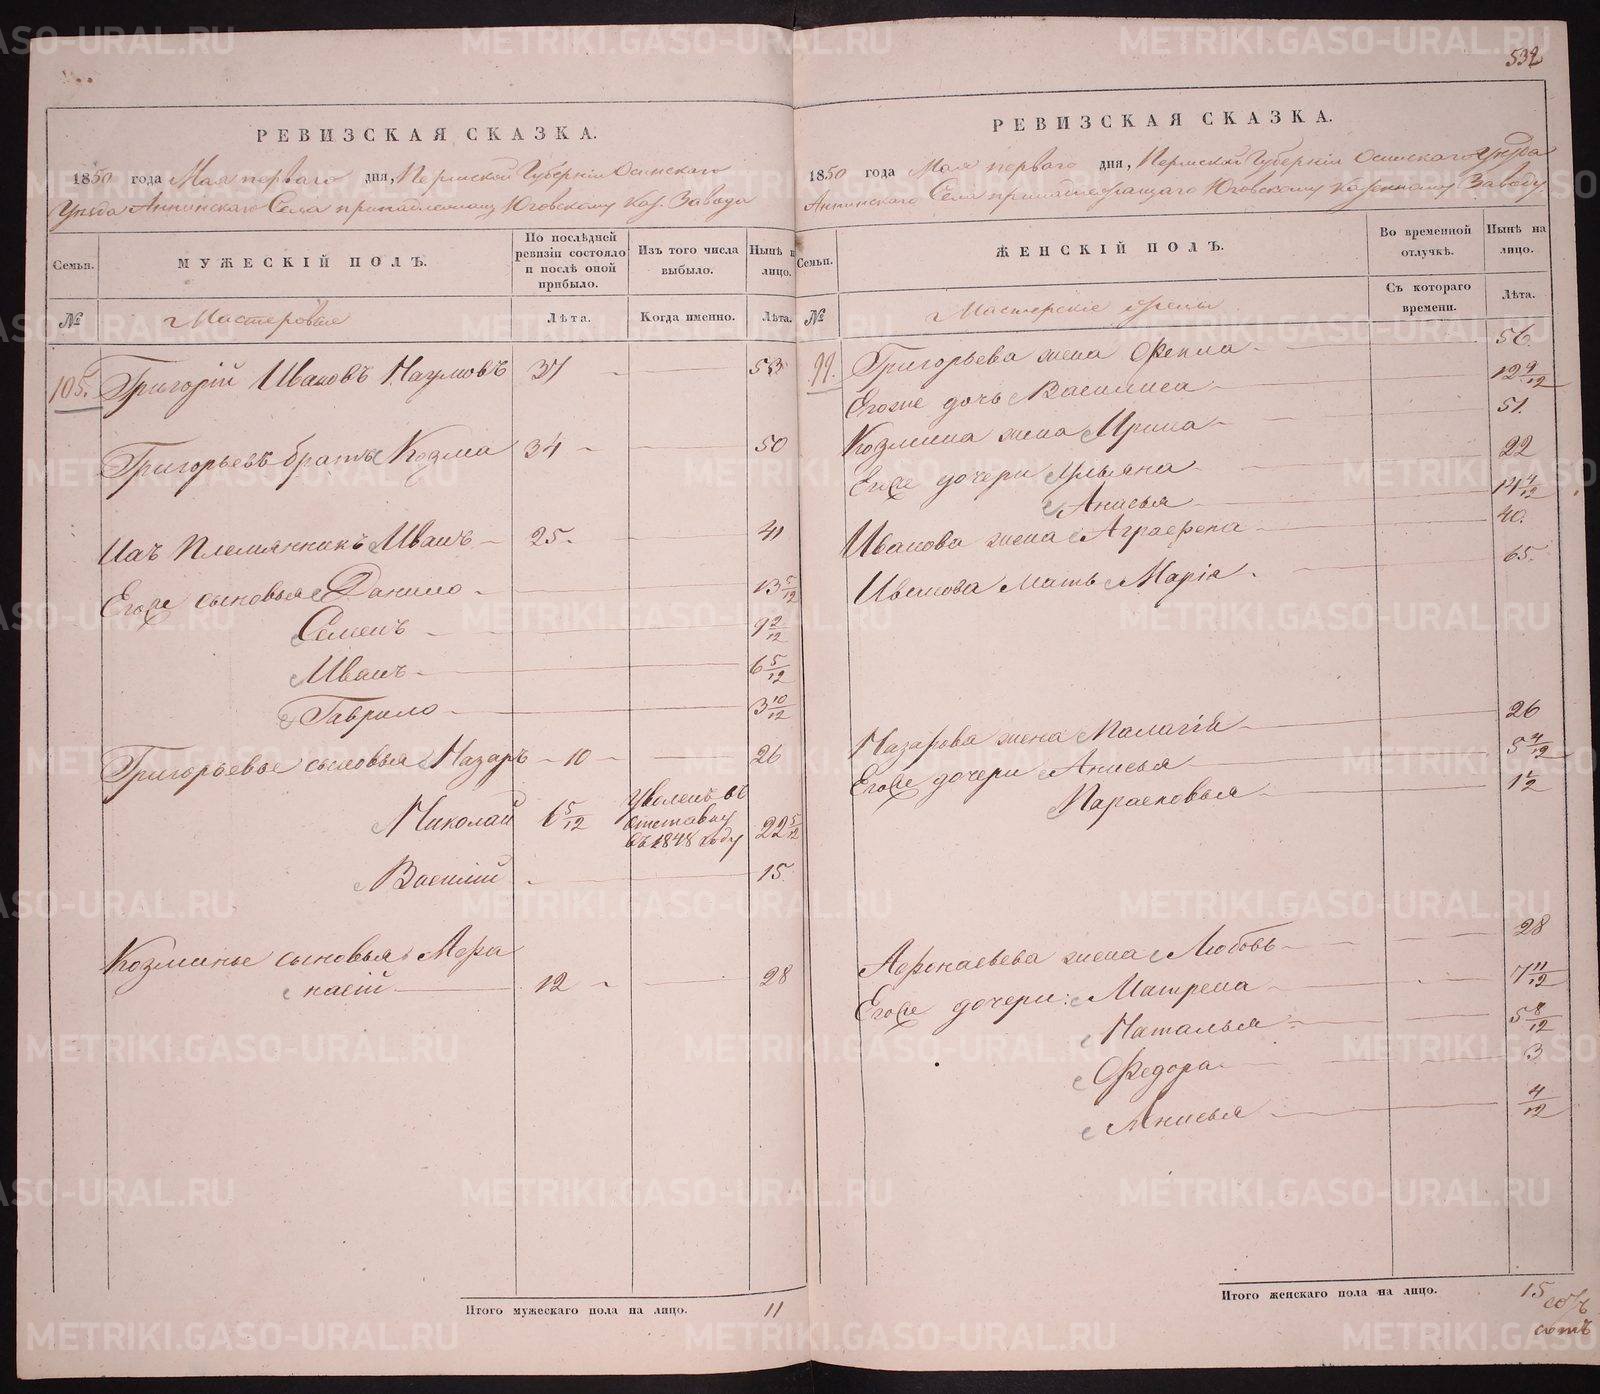 532
РЕВИЗСКАЯ СКАЗКА.
1850 года Мая первого дня, Пермской Губернiи Осинскаго
Уезда Аннинскаго Села принадлежащ Юговскому Каз. Завода
Семьи.
МУЖЕСКIЙ ПОЛЪ.
По послѣдней ревизiи состояло и послѣ оной прибыло.
Изъ того числа выбыло.
Нынѣ на лицо.
№
Мастеровые
Лѣта.
Когда именно.
Лѣта.
105. Григорiй Ивановъ Наумовъ 37 53
Григорьевъ братъ Козма 34 - 50
Ихъ Племянникъ Иванъ 25. 41
Егоже сыновья Данило 13 5/12
Семенъ 9 2/12
Иванъ 6 5/12
Гаврило 3 10/12
Григорьевы сыновья Назаръ 10 26
Николай 6 5/12 уволенъ въ отставку въ 1848 году 22 5/12
Василiй 15.
Козмины сыновья Афо
насiй 12 28
Итого мужескаго пола на лицо. 11
РЕВИЗСКАЯ СКАЗКА.
1850 года Мая первого дня, Пермской Губернiи Осинскаго Уезда
Аннинскаго Села принадлежащаго Юговскому Казенному Заводу
Семьи.
ЖЕНСКIЙ ПОЛЪ.
Во временной отлучкѣ.
Нынѣ на лицо.
№
Мастерскiе жены
Съ котораго времени.
Лѣта.
99. Григорьева жена Фекла 56.
Егоже дочь Василиса 12 9/12
Козмина жена Ирина 51.
Егоже дочери Ульяна 22
Анисья 14 4/12
Иванова жена Аграфена 40.
Иванова мать Марiя. 65.
Назарова жена Палагiя 26
Егоже дочери Анисья 5 4/12
Парасковья 1 1/2
Афонасьева жена Любовь 28
Егоже дочери: Матрена 7 11/12
Наталья 5 8/12
Федора 3
Анисья 4/12
Итого женскаго пола на лицо. 15